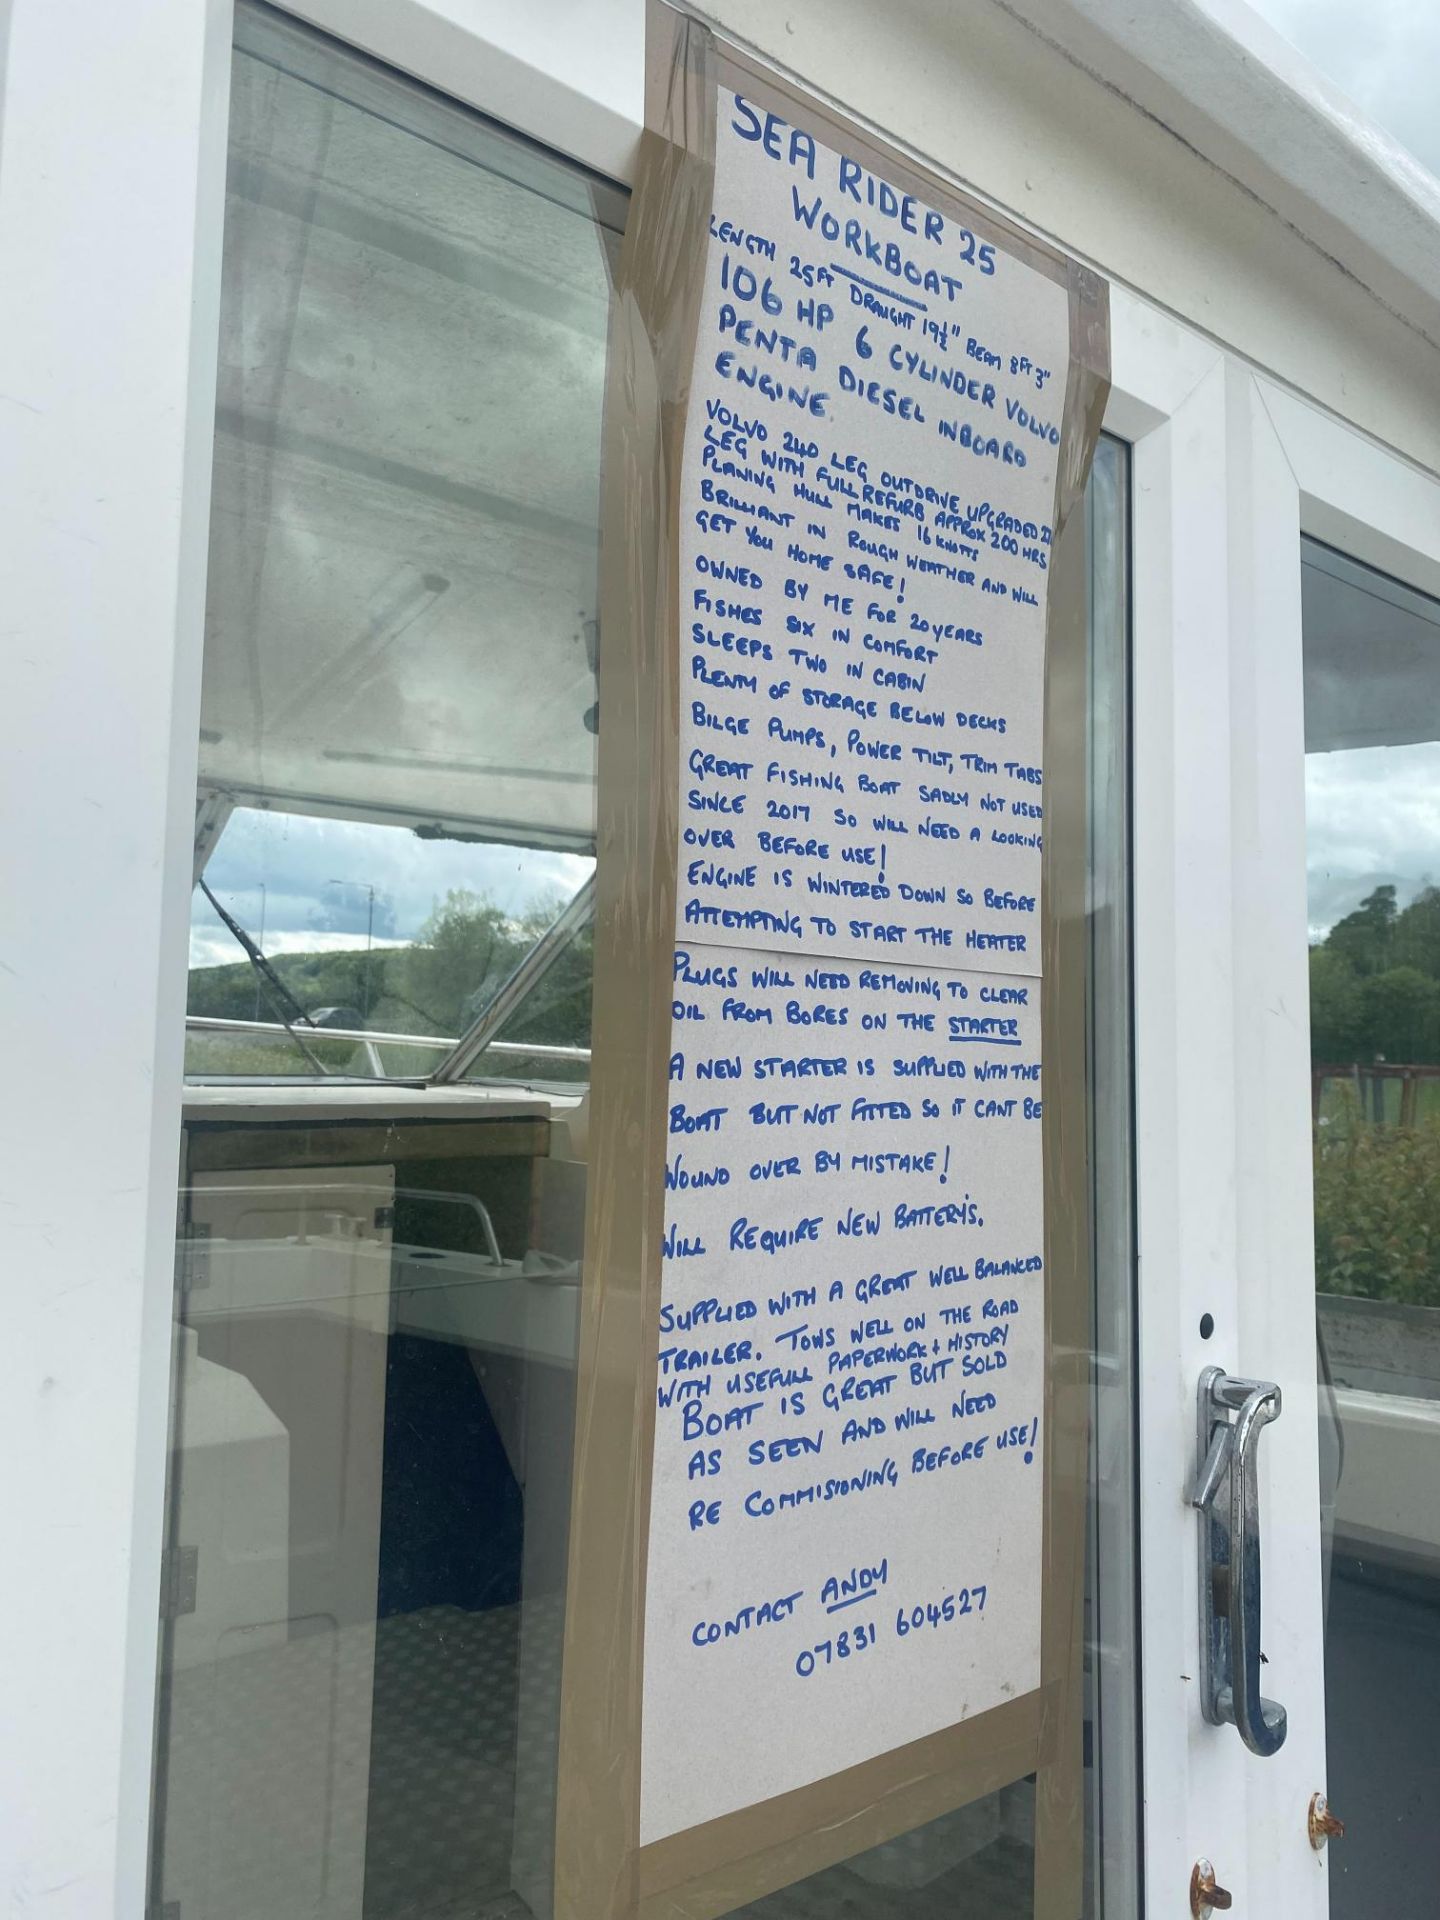 SEA RIDER 25
WORKBOAT
LENGTH 25FT DRAUGHT 19½" BEAM 8FT 3"
106 HP 6 CYLINDER VOLVO
PENTA DIESEL INBOARD
ENGINE.
VOLVO 240 LEG OUTDRIVE UPGRADED
LEG WITH FULL REFURB APPROX 200 HRS
PLANING HULL MAKES 16 KNOTTS
BRILLIANT IN ROUGH WEATHER AND WILL
GET YOU HOME SAFE!
OWNED BY ME FOR 20 YEARS
FISHES SIX IN COMFORT
SLEEPS TWO IN CABIN
PLENTY OF STORAGE BELOW DECKS
BILGE PUMPS, POWER TILT, TRIM TABS
GREAT FISHING BOAT SADLY NOT USED
SINCE 2017 SO WILL NEED A LOOKING
OVER BEFORE USE!
ENGINE IS WINTERED DOWN SO BEFORE
ATTEMPTING TO START THE HEATER
PLUGS WILL NEED REMOVING TO CLEAR
OIL FROM BORES ON THE STARTER
A NEW STARTER IS SUPPLIED WITH THE
BOAT BUT NOT FITTED SO IT CANT BE
WOUND OVER BY MISTAKE!
WILL REQUIRE NEW BATTERY'S.
SUPPLIED WITH A GREAT WELL BALANCED
TRAILER. TOWS WELL ON THE ROAD
WITH USEFULL PAPERWORK + HISTORY
BOAT IS GREAT BUT SOLD
AS SEEN AND WILL NEED
RE COMMISIONING BEFORE USE!
CONTACT ANDY
07831 604527